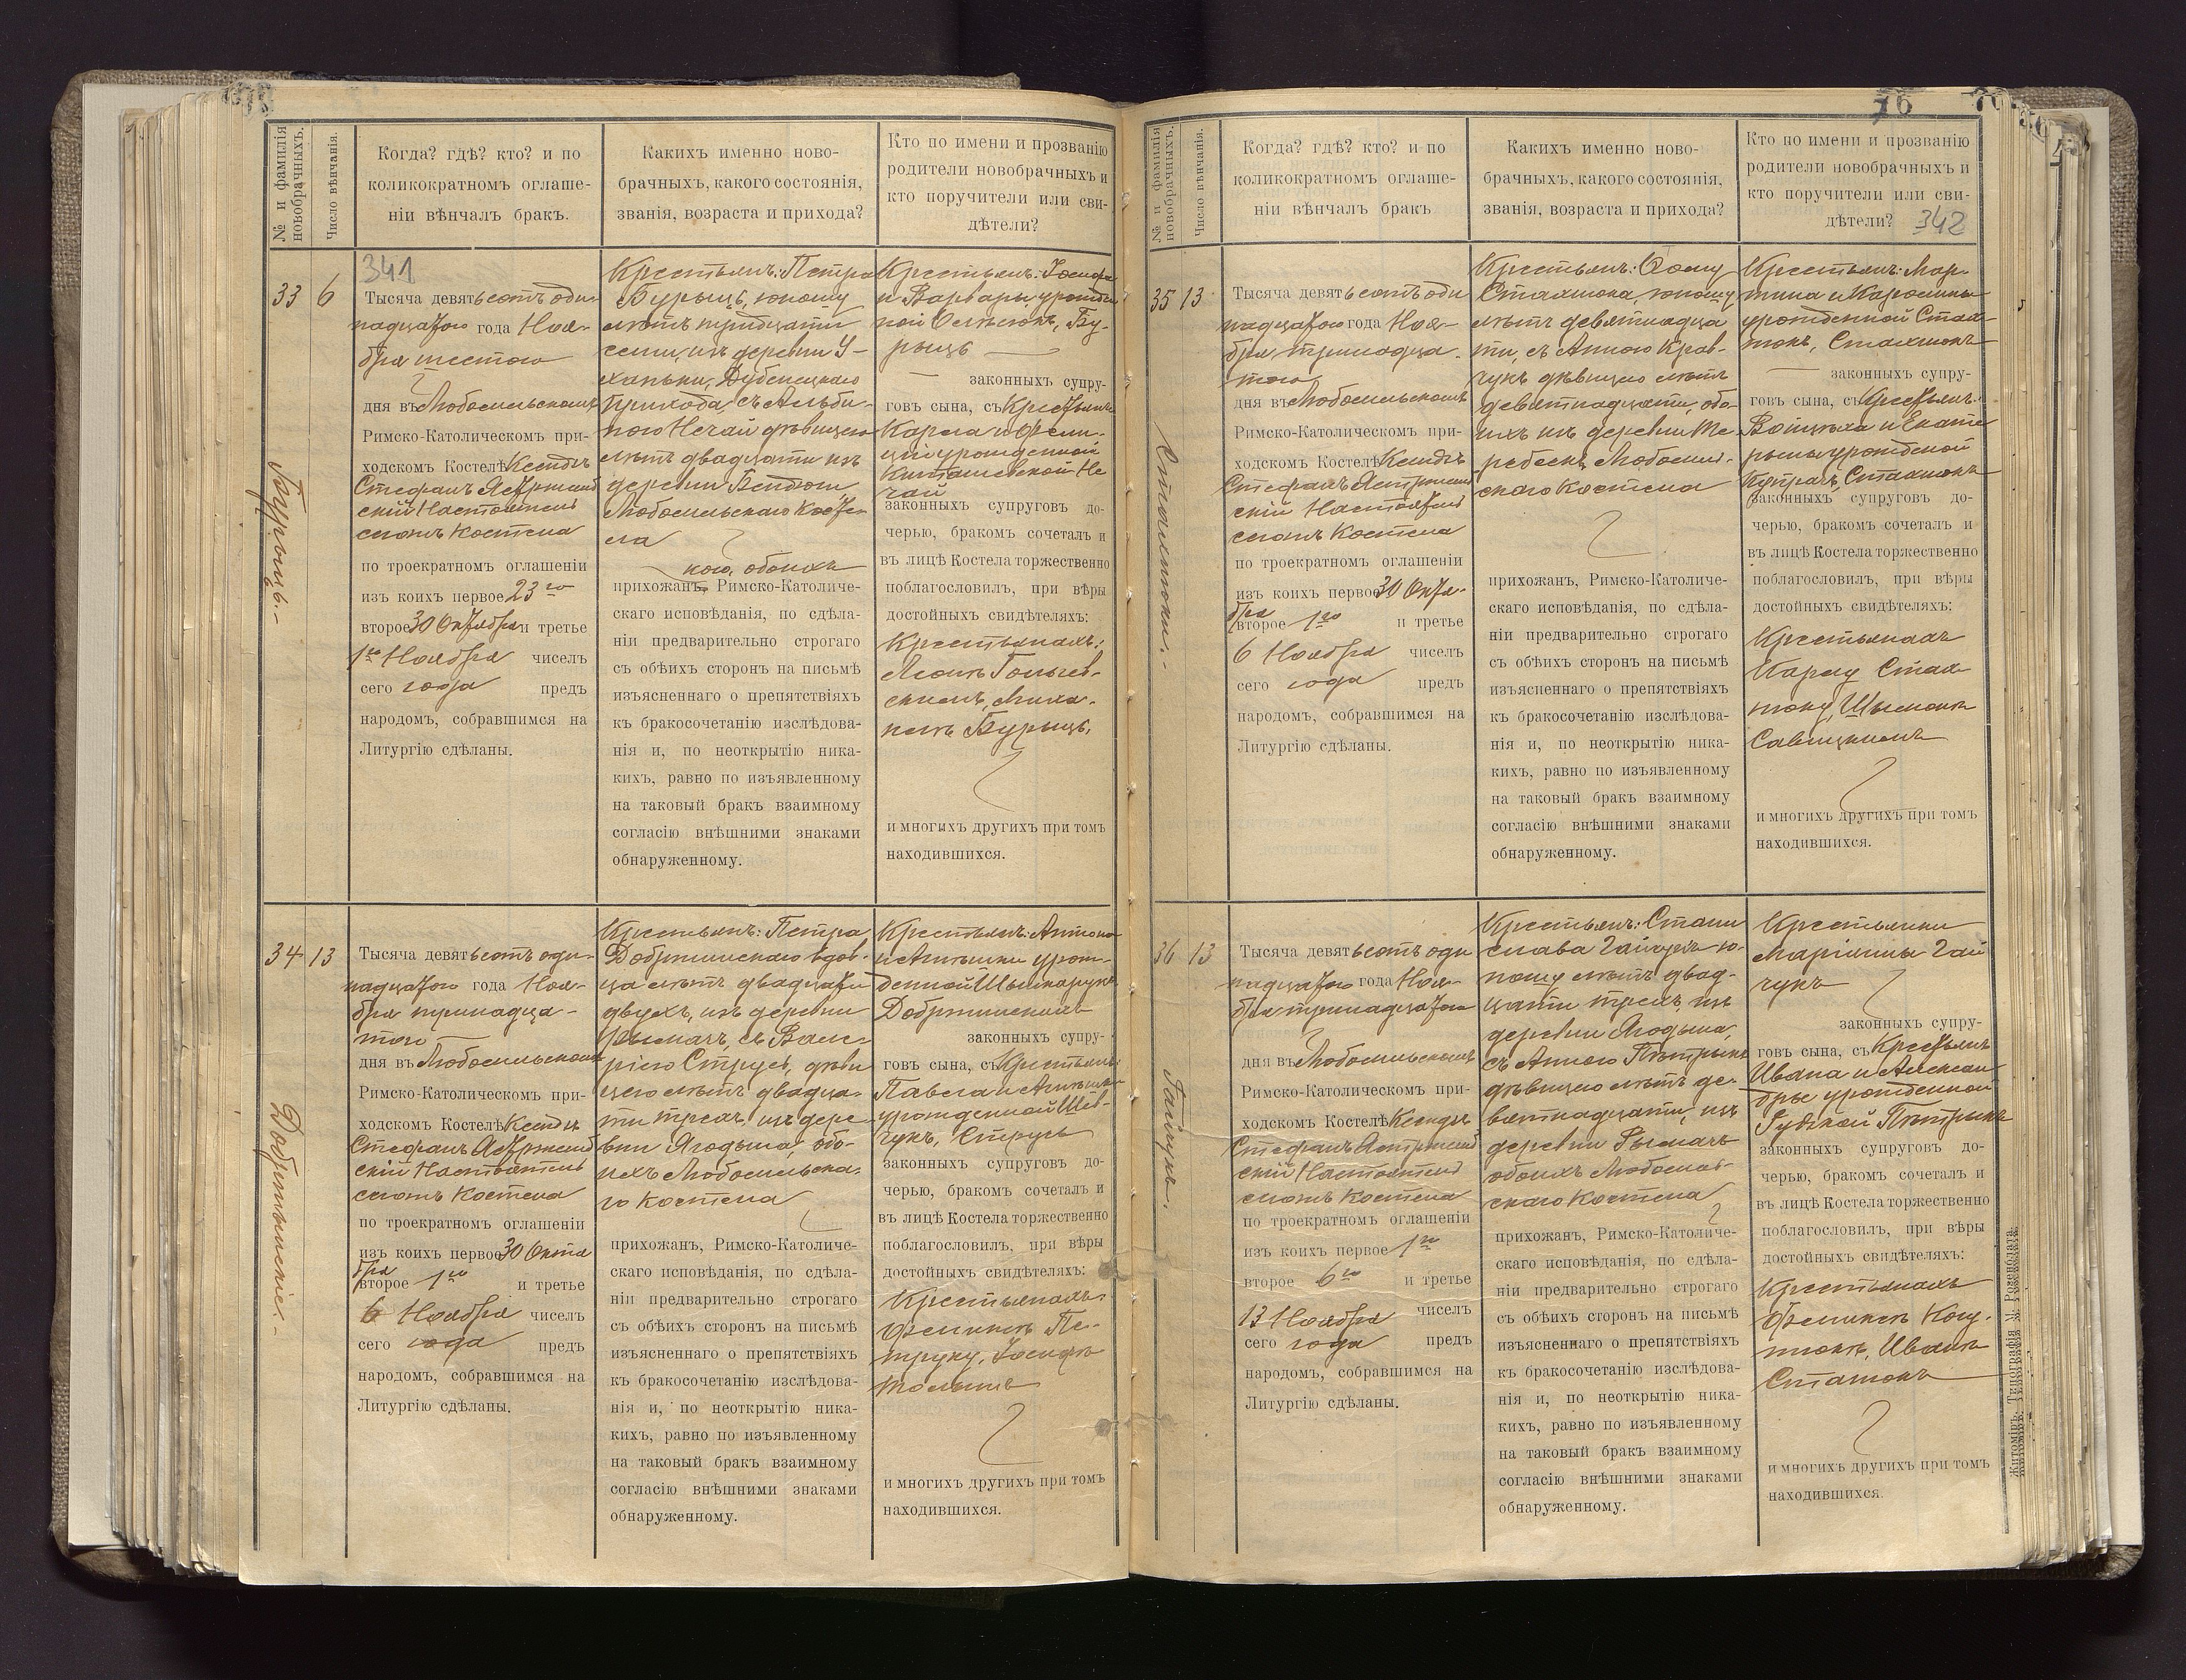 76
№ и фамилія новобрачныхъ.
Число вѣнчанія.
Когда? гдѣ? кто? и по
коликократномъ оглаше-
ніи вѣнчалъ бракъ.
Какихъ именно ново-
брачныхъ, какого состоянія,
званія, возраста и прихода?
Кто по имени и прозванію
родители новобрачныхъ и
кто поручители или сви-
дѣтели?
33
6
Бурыцъ.-
341
Тысяча девятьсотъ оди-
надцатого года Ноя-
бря шестого
дня въ Любомльскомъ
Римско-Католическомъ при-
ходскомъ Костелѣ Ксендзъ
Стефанъ Ястржемб
скій Настоятель
сможъ Костела
по троекратномъ оглашеніи
изъ коихъ первое 23го
второе 30 Октября и третье
1го Ноября чиселъ
сего года предъ
народомъ, собравшимся на
Литургію сдѣланы.
Крестьянъ: Петра
Бурыцъ, юношу
лѣтъ тридцати
семи, изъ деревни У-
ханьки, Дубенецкаго
прихода, съ Альби-
ною Нечай дѣвицею
лѣтъ двадцати изъ
деревни
Любомльскаго Косте
ла
кого, обоихъ
прихожанъ, Римско-Католиче-
скаго исповѣданія, по сдѣла-
ніи предварительно строгаго
съ обѣихъ сторонъ на письмѣ
изъясненнаго о препятствіяхъ
къ бракосочетанію изслѣдова-
нія и, по неоткрытію ника-
кихъ, равно по изъявленному
на таковый бракъ взаимному
согласію внѣшними знаками
обнаруженному.
Крестьянъ: Іосифа
и Варвары урожден
ной Бу-
рыцъ
законныхъ супру-
говъ сына, съ Крестьянъ
Карола и Фели-
ціи урожденной
Киташевской Не
чай
законныхъ супруговъ до-
черью, бракомъ сочеталъ и
въ лицѣ Костела торжественно
поблагословилъ, при вѣры
достойныхъ свидѣтеляхъ:
Крестьянахъ:
скимъ, Миха-
ломъ Бурыцъ,
и многихъ другихъ при томъ
находившихся.
34
13
Добржинскіе.-
Тысяча девятьсотъ оди-
надцатого года Ноя-
бря тринадца-
того
дня въ Любомльскомъ
Римско-Католическомъ при-
ходскомъ Костелѣ Ксендзъ
Стефанъ Ястржемб
скій Настоятель
сможъ Костела
по троекратномъ оглашеніи
изъ коихъ первое 30 Октя
бря
второе 1го и третье
6 Ноября чиселъ
сего года предъ
народомъ, собравшимся на
Литургію сдѣланы.
Крестьянъ: Петра
Добржинскаго вдов-
ца лѣтъ двадцати
двухъ, изъ деревни
Рымачъ, съ Вале-
ріею Струсъ, дѣви
цею лѣтъ двадца-
ти трехъ изъ дере
вни Ягодына, обо-
ихъ Любомльска-
го Костела
прихожанъ, Римско-Католиче-
скаго исповѣданія, по сдѣла-
ніи предварительно строгаго
съ обѣихъ сторонъ на письмѣ
изъясненнаго о препятствіяхъ
къ бракосочетанію изслѣдова-
нія и, по неоткрытію ника-
кихъ, равно по изъявленному
на таковый бракъ взаимному
согласію внѣшними знаками
обнаруженному.
Крестьянъ: Антона
и Агнешки урож-
денной
Добржинскихъ
законныхъ супру-
говъ сына, съ Крестьянъ:
Павела и Агнешки
урожденной Шев-
чукъ, Струсъ
законныхъ супруговъ до-
черью, бракомъ сочеталъ и
въ лицѣ Костела торжественно
поблагословилъ, при вѣры
достойныхъ свидѣтеляхъ:
Крестьянахъ:
Феликсѣ Пе-
труку, Іосифѣ
и многихъ другихъ при томъ
находившихся.
№ и фамилія новобрачныхъ.
Число вѣнчанія.
Когда? гдѣ? кто? и по
коликократномъ оглаше-
ніи вѣнчалъ бракъ
Какихъ именно ново-
брачныхъ, какого состоянія,
званія, возраста и прихода?
Кто по имени и прозванію
родители новобрачныхъ и
кто поручители или сви-
дѣтели? 342
35
13
Стахнюки.-
Тысяча девятьсотъ оди
надцатого года Ноя-
бря, тринадца-
того
дня въ Любомльскомъ
Римско-Католическомъ при-
ходскомъ Костелѣ Ксендзъ
Стефанъ Ястржемб
скій Настоятель
сможъ Костела
по троекратномъ оглашеніи
изъ коихъ первое 30 Октя-
бря
второе 1го и третье
6 Ноября чиселъ
сего года предъ
народомъ, собравшимся на
Литургію сдѣланы.
Крестьянъ: Ѳому
Стахнюка, юношу
лѣтъ девятнадца
ти, съ Анною Крав-
чукъ дѣвицею лѣтъ
девятнадцати, обо-
ихъ изъ деревни Те-
ребеекъ Любомль-
скаго Костела
прихожанъ, Римско-Католиче-
скаго исповѣданія, по сдѣла-
ніи предварительно строгаго
съ обѣихъ сторонъ на письмѣ
изъясненнаго о препятствіяхъ
къ бракосочетанію изслѣдова-
нія и, по неоткрытію ника-
кихъ, равно по изъявленному
на таковый бракъ взаимному
согласію внѣшними знаками
обнаруженному.
Крестьянъ: Мар-
тина и Каролины
урожденной Стах-
нюкъ, Стахнюкъ
законныхъ супру-
говъ сына, съ Крестьянъ
Войцѣха и Екате
рины урожденной
Купрачъ, Стахнюкъ
законныхъ супруговъ до-
черью, бракомъ сочеталъ и
въ лицѣ Костела торжественно
поблагословилъ, при вѣры
достойныхъ свидѣтеляхъ:
Крестьянахъ
Каролу Стах
нюку, Шымонъ
Савицкимъ
и многихъ другихъ при томъ
находившихся.
36
13
Гайчукъ.
Тысяча девятьсотъ оди
надцатого года Ноя-
бря тринадцатого
дня въ Любомльскомъ
Римско-Католическомъ при-
ходскомъ Костелѣ Ксендзъ
Стефанъ Ястржемб
скій Настоятель
сможъ Костела
по троекратномъ оглашеніи
изъ коихъ первое 1го
второе 6го и третье
13 Ноября чиселъ
сего года предъ
народомъ, собравшимся на
Литургію сдѣланы.
Крестьянъ: Стани
слава Гайчукъ ю-
ношу лѣтъ двад-
цати трехъ, изъ
деревни Ягодына,
съ Анною Пѣтрыкъ
дѣвицею лѣтъ де-
вятнадцати, изъ
деревни Рымачъ
обоихъ Любомль-
скаго Костела
прихожанъ, Римско-Католиче-
скаго исповѣданія, по сдѣла-
ніи предварительно строгаго
съ обѣихъ сторонъ на письмѣ
изъясненнаго о препятствіяхъ
къ бракосочетанію изслѣдова-
нія и, по неоткрытію ника-
кихъ, равно по изъявленному
на таковый бракъ взаимному
согласію внѣшними знаками
обнаруженному.
Крестьянки
Маріянны Гай
чукъ
законныхъ супру-
говъ сына, съ Крестьянъ
Ивана и Алексан
дры урожденной
Гудзкой Пѣтрыкъ
законныхъ супруговъ до-
черью, бракомъ сочеталъ и
въ лицѣ Костела торжественно
поблагословилъ, при вѣры
достойныхъ свидѣтеляхъ:
Крестьянахъ
Феликсъ
Иванъ
и многихъ другихъ при томъ
находившихся.
Житоміръ. Типографія У. Розенблата.